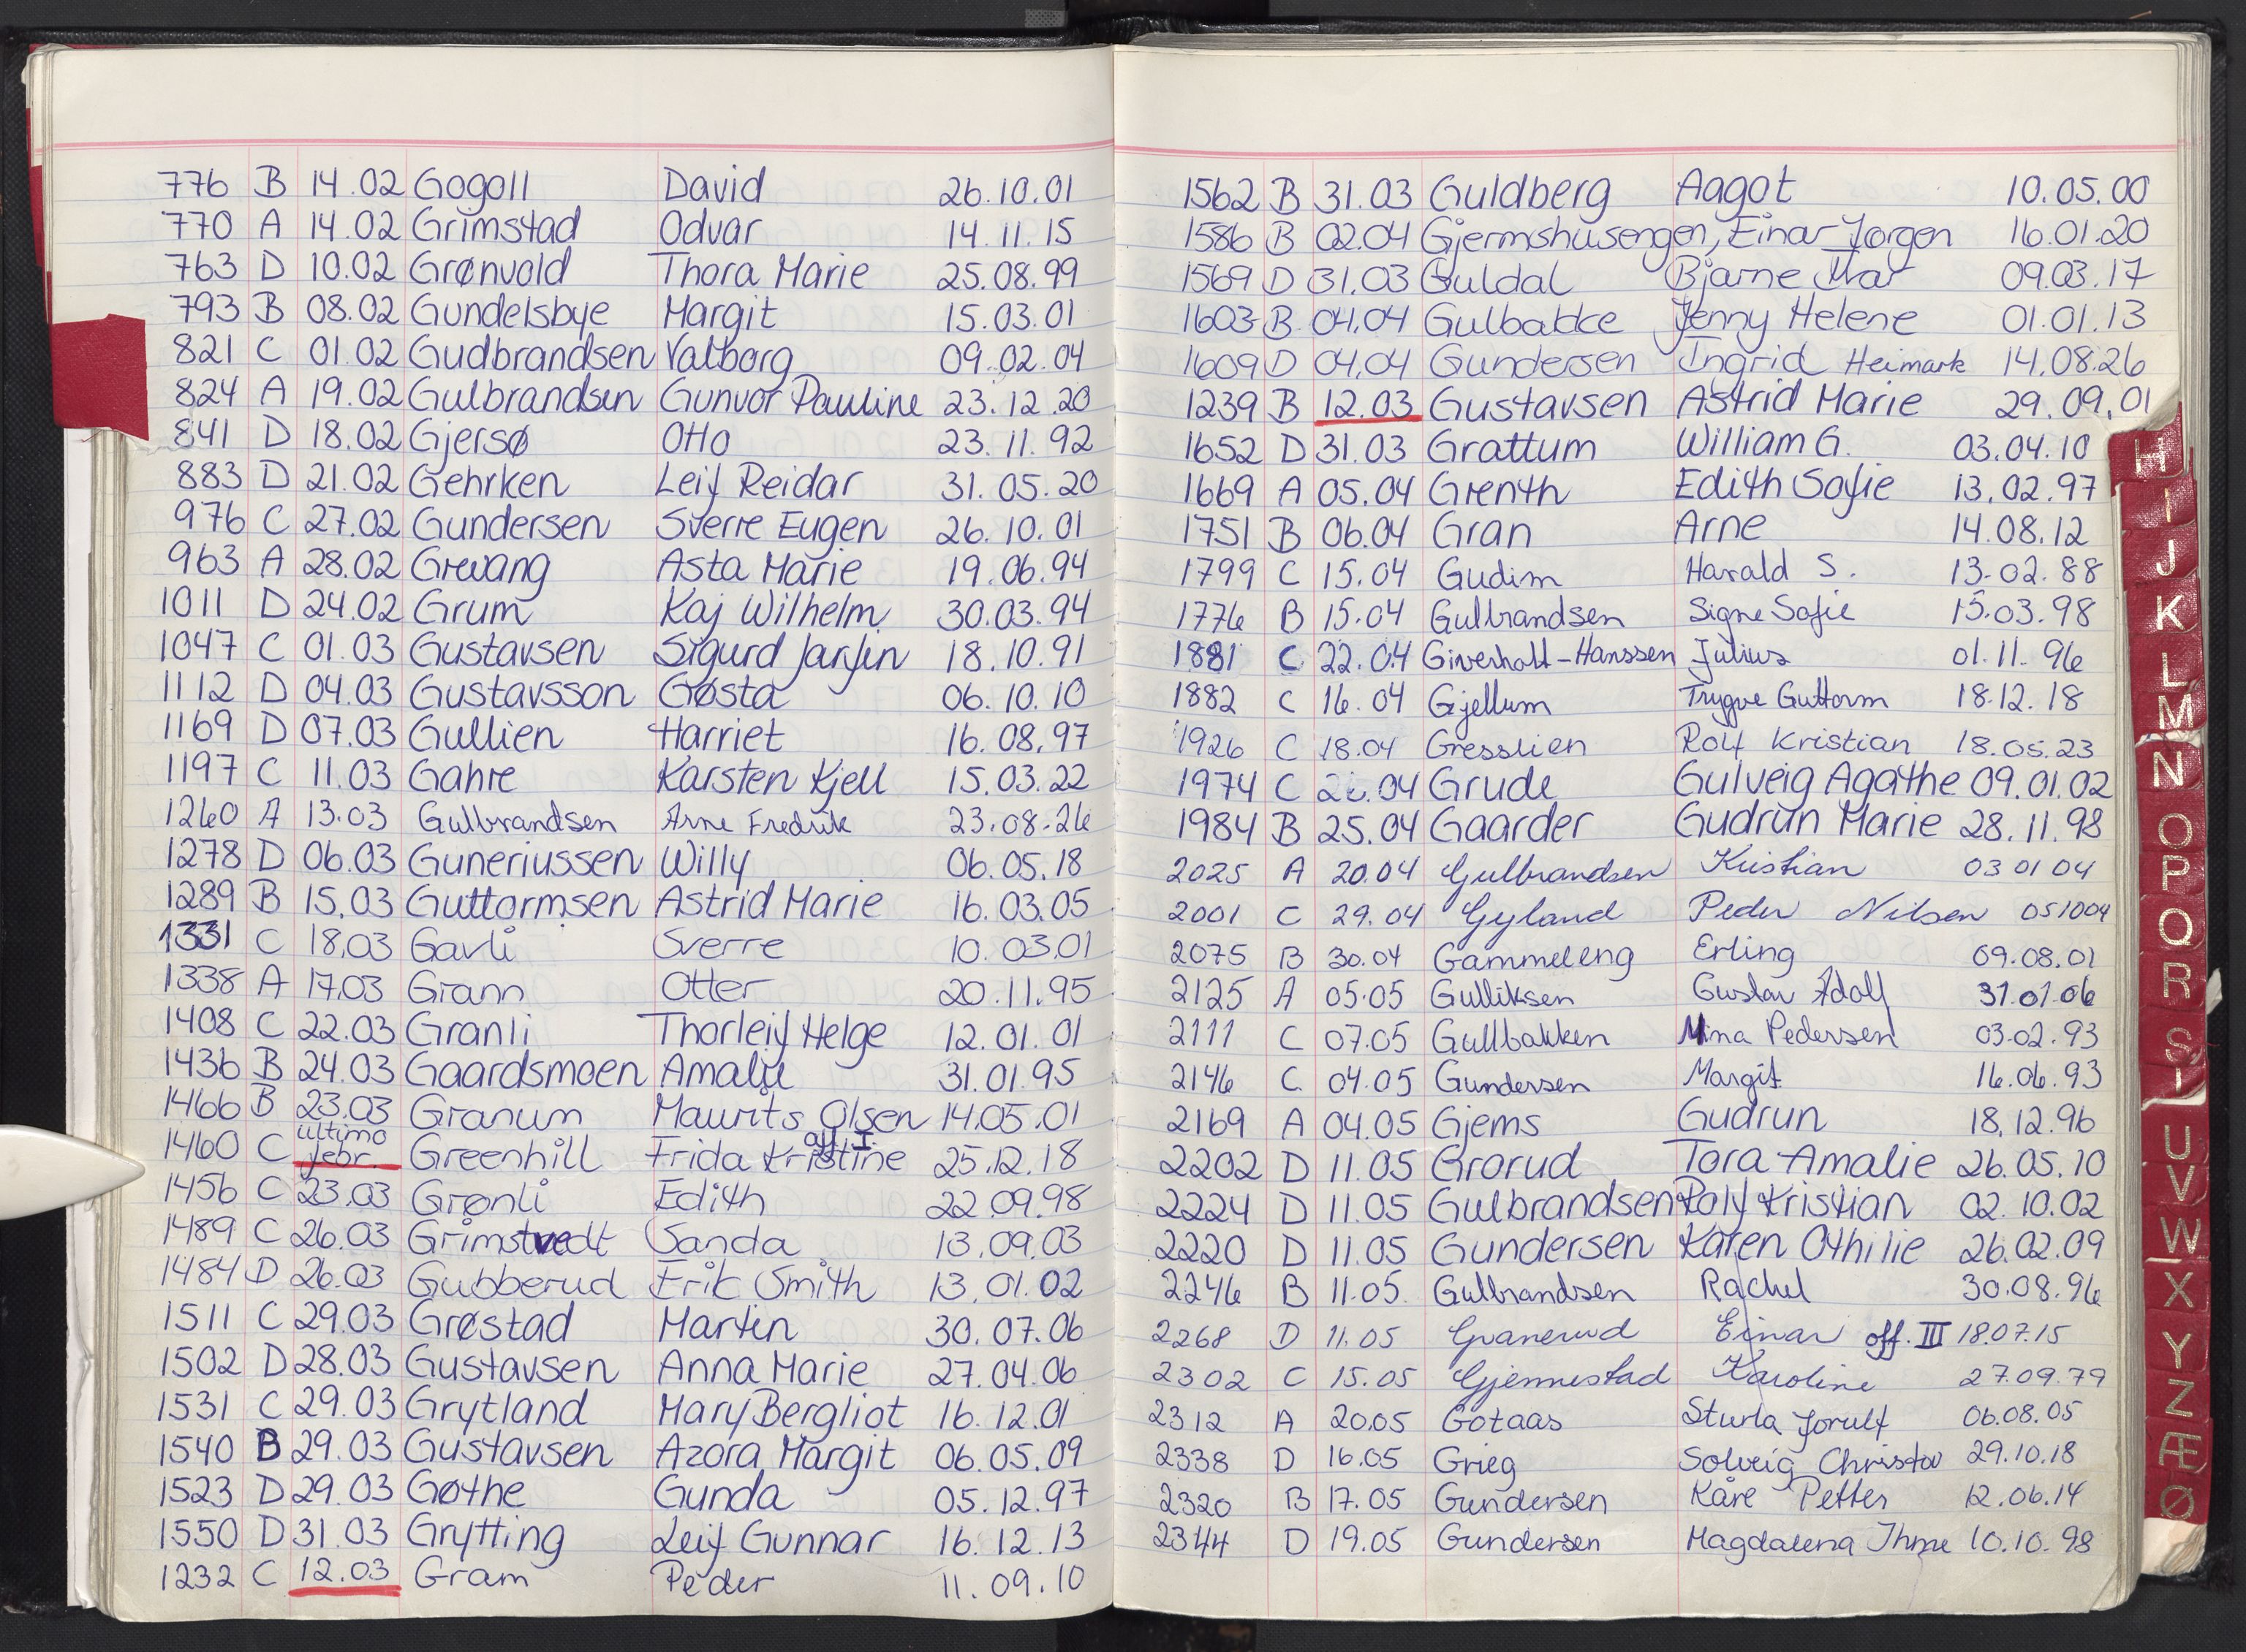 776 B 14.02 Gogoll David 26.10.01
770 A 14.02 Grimstad Odvar 14.11.15
763 D 10.02 Grønvold Thora Marie 25.08.99
793 B 08.02 Gundelsbye Margit 15.03.01
821 C 01.02 Gudbrandsen Valborg 09.02.04
824 A 19.02 Gulbrandsen Gunvor Pauline 23.12.20
841 D 18.02 Gjersø Otto 23.11.92
883 D 21.02 Gehrken Leif Reidar 31.05.20
976 C 27.02 Gundersen Sverre Eugen 26.10.01
963 A 28.02 Grevang Asta Marie 19.06.94
1011 D 24.02 Grum Kaj Wilhelm 30.03.94
1047 C 01.03 Gustavsen Sigurd Jarfin 18.10.91
1112 D 04.03 Gustavsson Gøsta 06.10.10
1169 D 07.03 Gullien Harriet 16.08.97
1197 C 11.03 Gahre Karsten Kjell 15.03.22
1260 A 13.03 Gulbrandsen Arne Fredrik 23.08.26
1278 D 06.03 Guneriussen Willy 06.05.18
1289 B 15.03 Guttormsen Astrid Marie 16.03.05
1331 C 18.03 Gavli Sverre 10.03.01
1338 A 17.03 Grann Otter 20.11.95
1408 C 22.03 Granli Thorleif Helge 12.01.01
1436 B 24.03 Gaardsmoen Amalie 31.01.95
1466 B 23.03 Granum Maurits Olsen 14.05.01
1460 C ultimo febr. Greenhill Frida Kristine off. I 25.12.18
1456 C 23.03 Grønli Edith 22.09.98
1489 C 26.03 Grimstvedt Sanda 13.09.03
1484 D 26.03 Gubberud Erik Smith 13.01.02
1511 C 29.03 Grøstad Martin 30.07.06
1502 D 28.03 Gustavsen Anna Marie 27.04.06
1531 C 29.03 Grytland Mary Bergliot 16.12.01
1540 B 29.03 Gustavsen Azora Margit 06.05.09
1523 D 29.03 Gøthe Gunda 05.12.97
1550 D 31.03 Grytting Leif Gunnar 16.12.13
1232 C 12.03 Gram Peder 11.09.10
1562 B 31.03 Guldberg Aagot 10.05.00
1586 B 02.04 Gjermshusengen, Einar Jørgen 16.01.20
1569 D 31.03 Guldal Bjarne Ivar 09.03.17
1603 B 04.04 Gulbakke Jenny Helene 01.01.13
1609 D 04.04 Gundersen Ingrid Heimark 14.08.26
1239 B 12.03 Gustavsen Astrid Marie 29.09.01
1652 D 31.03 Grattum William G. 03.04.10
1669 A 05.04 Grenth Edith Sofie 13.02.97
1751 B 06.04 Gran Arne 14.08.12
1799 C 15.04 Gudim Harald S. 13.02.88
1776 B 15.04 Gulbrandsen Signe Sofie 15.03.98
1881 C 22.04 Giverholt-Hanssen Julius 01.11.96
1882 C 16.04 Gjellum Trygve Guttorm 18.12.18
1926 C 18.04 Gresslien Rolf Kristian 18.05.23
1974 C 04 Grude Gulveig Agathe 09.01.02
1984 B 25.04 Gaarder Gudrun Marie 28.11.98
2025 A 20.04 Gulbrandsen Kristian 03 01 04
2001 C 29.04 Gyland Peder Nilsen 051004
2075 B 30.04 Gammeleng Erling 09.08.01
2125 A 05.05 Gulliksen Gustav Adolf 31.01.06
2111 C 07.05 Gullbakken Mina Pedersen 03.02.93
2146 C 04.05 Gundersen Margit 16.06.93
2169 A 04.05 Gjems Gudrun 18.12.96
2202 D 11.05 Grorud Tora Amalie 26.05.10
2224 D 11.05 Gulbrandsen Rolf Kristian 02.10.02
2220 D 11.05 Gundersen Karen Othilie 26.02.09
2246 B 11.05 Gulbrandsen Rachel 30.08.96
2268 D 11.05 Granerud Einar off. III 18.07.15
2302 C 15.05 Gjennestad Karoline 27.09.79
2312 A 20.05 Gotaas Sturla Jorulf 06.08.05
2338 D 16.05 Grieg Solveig 29.10.18
2320 B 17.05 Gundersen Kåre Petter 12.06.14
2344 D 19.05 Gundersen Magdalena Ihme 10.10.98
H
I
J
K
L
M
N
O
P
Q
R
S
U
V
W
X
Y
Z
Æ
Ø